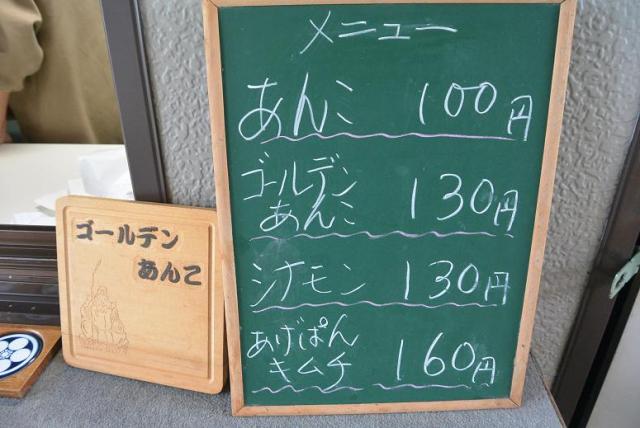 メニュー
あんこ 100円
ゴールデン
あんこ 130円
シナモン 130円
あげぱん
キムチ 160円
ゴールデン
あんこ